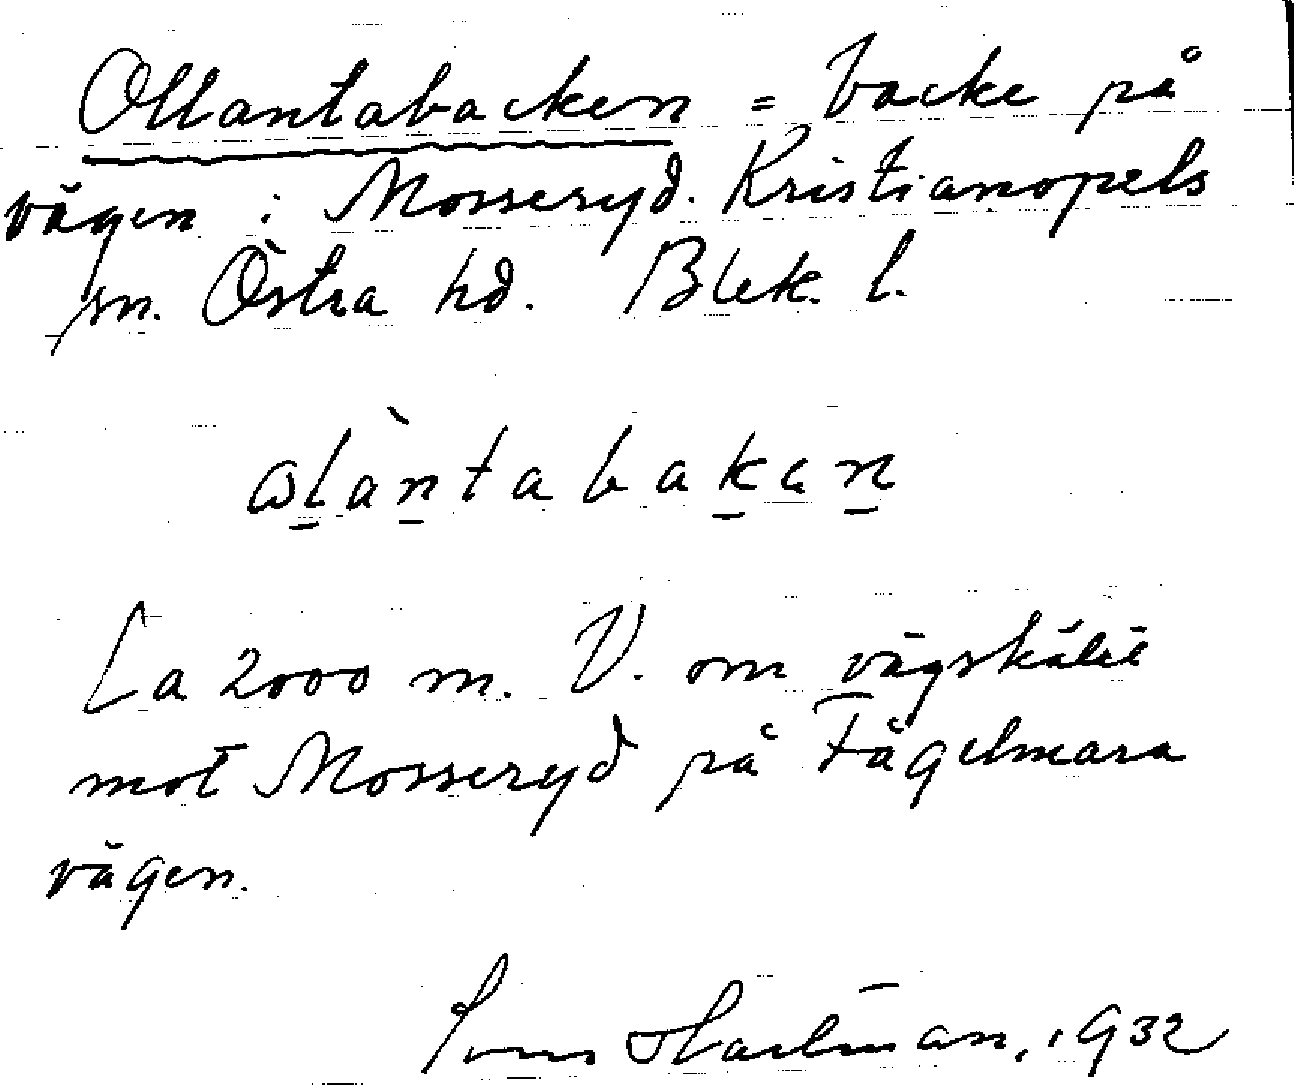 Ollantabacken = backe på
vägen i Mosseryd. Kristianopels
sn. Östra hd. Blek. l.
ɷlàntabakɑn
Ca 2000 m. V. om vägskälet
mot Mosseryd på Fågelmara
vägen.
Hartman, 1932